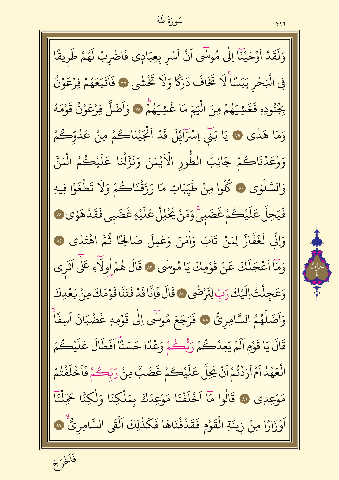 سُورَةُ طٰهٰ
٣١٦
وَلَقَدْ اَوْحَيْنَٓا اِلٰى مُوسٰٓى اَنْ اَسْرِ بِعِبَادٖى فَاضْرِبْ لَهُمْ طَرٖيقًا
فِى الْبَحْرِ يَبَسًاۙ لَا تَخَافُ دَرَكًا وَلَا تَخْشٰى ﴿٧٧﴾ فَاَتْبَعَهُمْ فِرْعَوْنُ
بِجُنُودِهٖ فَغَشِيَهُمْ مِنَ الْيَمِّ مَا غَشِيَهُمْؕ ﴿٧٨﴾ وَاَضَلَّ فِرْعَوْنُ قَوْمَهُ
وَمَا هَدٰى ﴿٧٩﴾ يَا بَنٖٓى اِسْرَٓائٖلَ قَدْ اَنْجَيْنَاكُمْ مِنْ عَدُوِّكُمْ
وَوٰعَدْنَاكُمْ جَانِبَ الطُّورِ الْاَيْمَنَ وَنَزَّلْنَا عَلَيْكُمُ الْمَنَّ
وَالسَّلْوٰى ﴿٨٠﴾ كُلُوا مِنْ طَيِّبَاتِ مَا رَزَقْنَاكُمْ وَلَا تَطْغَوْا فٖيهِ
فَيَحِلَّ عَلَيْكُمْ غَضَبٖىۚ وَمَنْ يَحْلِلْ عَلَيْهِ غَضَبٖى فَقَدْ هَوٰى ﴿٨١﴾
وَاِنّٖى لَغَفَّارٌ لِمَنْ تَابَ وَاٰمَنَ وَعَمِلَ صَالِحًا ثُمَّ اهْتَدٰى ﴿٨٢﴾
وَمَٓا اَعْجَلَكَ عَنْ قَوْمِكَ يَا مُوسٰى ﴿٨٣﴾ قَالَ هُمْ اُولَٓاءِ عَلٰٓى اَثَرٖى
وَعَجِلْتُ اِلَيْكَ رَبِّ لِتَرْضٰى ﴿٨٤﴾ قَالَ فَاِنَّا قَدْ فَتَنَّا قَوْمَكَ مِنْ بَعْدِكَ
وَاَضَلَّهُمُ السَّامِرِىُّ ﴿٨٥﴾ فَرَجَعَ مُوسٰٓى اِلٰى قَوْمِهٖ غَضْبَانَ اَسِفًاۚ
قَالَ يَا قَوْمِ اَلَمْ يَعِدْكُمْ رَبُّكُمْ وَعْدًا حَسَنًاؕ اَفَطَالَ عَلَيْكُمُ
الْعَهْدُ اَمْ اَرَدْتُمْ اَنْ يَحِلَّ عَلَيْكُمْ غَضَبٌ مِنْ رَبِّكُمْ فَاَخْلَفْتُمْ
مَوْعِدٖى ﴿٨٦﴾ قَالُوا مَٓا اَخْلَفْنَا مَوْعِدَكَ بِمَلْكِنَا وَلٰكِنَّا حُمِّلْنَٓا
اَوْزَارًا مِنْ زٖينَةِ الْقَوْمِ فَقَذَفْنَاهَا فَكَذٰلِكَ اَلْقَى السَّامِرِىُّۙ ﴿٨٧﴾
فَاَخْرَجَ